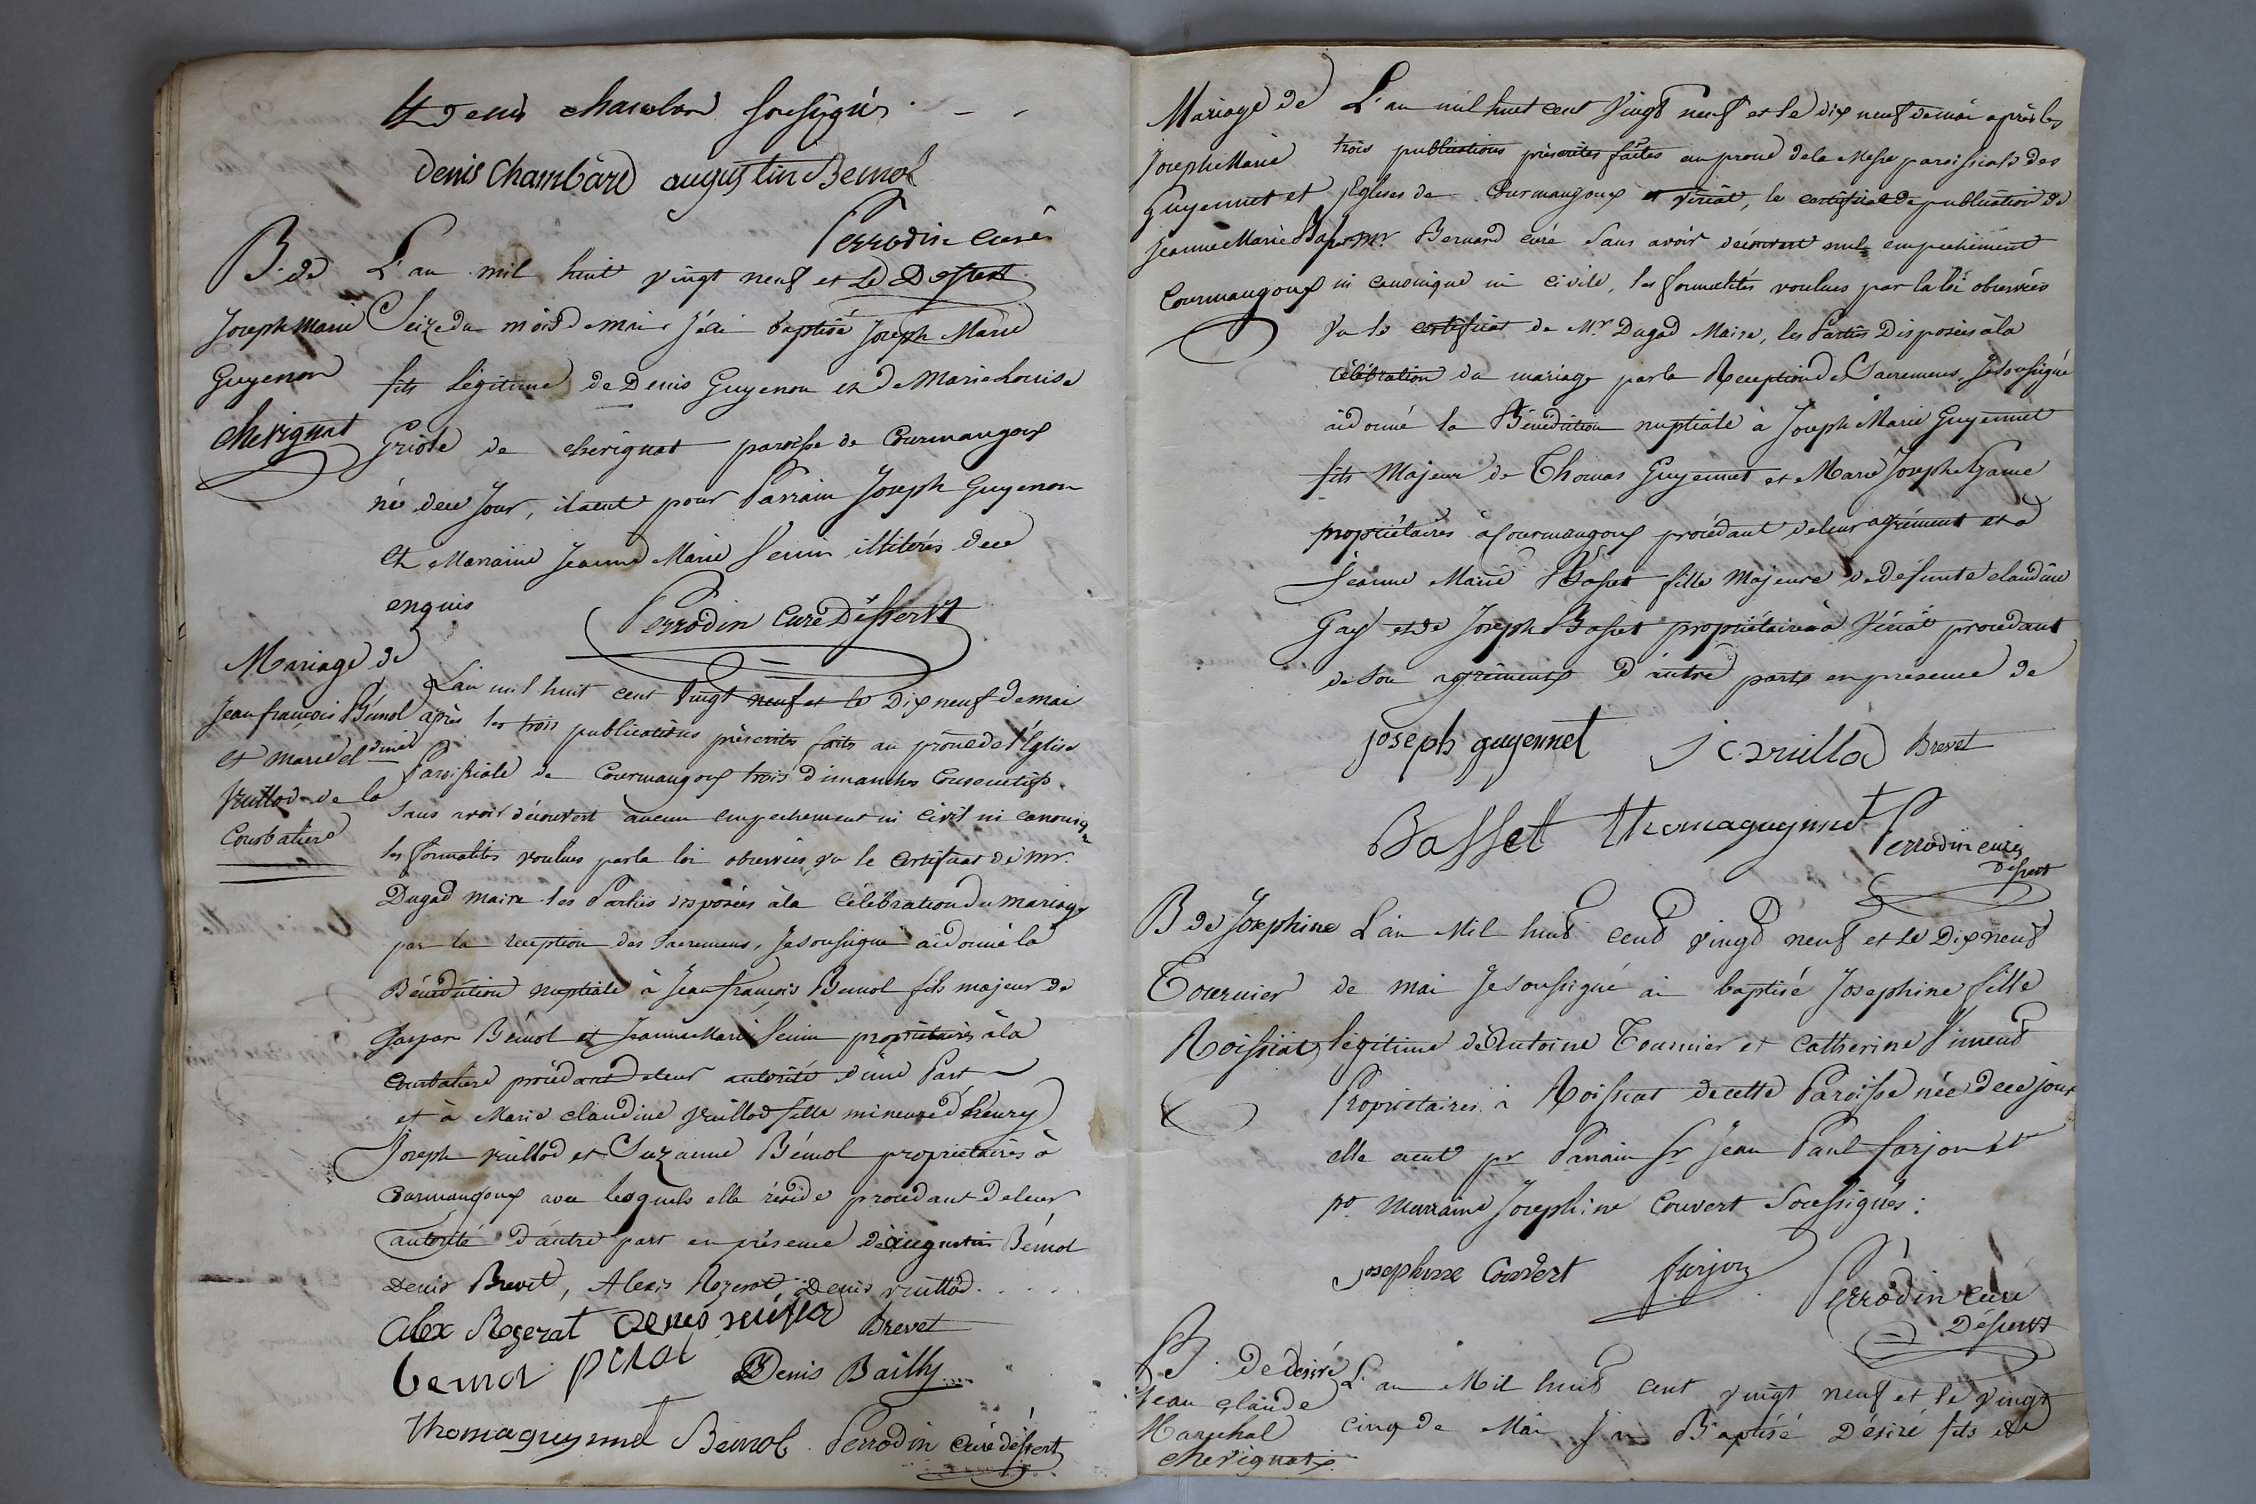 et denis chambard soussignés
denis Chambard augustin Bernol
Perrodin curé
B. de
Joseph Marie
Guyenon
cherignat
L'an mil huit vingt neuf et le
Seize du mois de mai j'ai baptisé Joseph Marie
fils légitime de Denis Guyenon et de Marie Louise
Griote de cherignat paroisse de Courmangoux
né de ce Jour, il a eut pour Parrain Joseph Guyenon
et Marraine Jeanne Marie illiterés de ce
enquis
Perrodin Curé Dessert
Mariage de
Jean françois Bémol
et marie cl dine
Vuillod de la
Courbatiere
L'an mil huit cent Vingt neuf et le Dix neuf de mai
après les trois publications prèscrites faits au prône de l'Eglise
Paroissiale de Courmangoux trois dimanches Consecutifs
sans avoir découvert aucun empechement ni civil ni canoniq
les formalités voulues par la loi observées, vu le Certificat de mr.
Dugad maire les Parties disposées à la célébration du mariage
par la reception des Sacremens, Je soussigné ai donné la
Bénédiction nuptiale à Jean françois Bemol fils majeur de
Gaspar Bémol et Jeanne Marie propriétaires à la
Courbatiere procédant de leur autorité d'une Part
et à Marie claudine Vuillod fille mineure d'henry
Joseph vuillod et Suzanne Bémol propriétaires à
Curmangoux avec lesquels elle réside procedant de leur
autorité d'autre part en présence de augustin Bémol
Denis Brevet, Alexis Rozerat Denis vuillod
alex Rozerat Denis Brevet
bemol Denis Bailly
thoma guynnet Bemol Perrodin curé déssert
Mariage de
Joseph Marie
Guyennet et
Jeanne Marie Basset
Courmangoux
L'an mil huit cent Vingt neuf et le dix neuf de mai après les
trois publications prèscrites faites au prone de la Messe paroissiale des
Eglises de Courmangoux et Viriat, le certificat de publication de
mr Bernard curé sans avoir découvert nul empechement
ni canonique ni civile, les formalités voulues par la loi observées
Vu le certificat de Mr Dugad Maire, les Parties Disposées à la
célébration du mariage par la Reception des Sacremens, Je soussigné
ai donné la Bénédiction nuptiale à Joseph Marie Guyennet
fils Majeur de Thomas Guyennet et Marie Josephe
propriétaires à Courmangoux procédant de leur agrément et à
Jeanne Marie Basset fille Majeure de défunte claudine
Gay et de Joseph Basset propriétaire à Viriat procedant
de son agrément d'autre part en presence de
joseph guyennet Brevet
Basset thoma guynnet Perrodin curé
Déssert
B de Josephine
Tournier
Roissiat
L'an Mil huit cent vingt neuf et le Dix neuf
de mai Je soussigné ai baptisé Josephine fille
légitime de Antoine Tournier et Catherine
Propriétaires à Roissiat de cette Paroisse née de ce jour
elle aeut pr Parrain Sr Jean Paul farjon et
pr Marraine Josephine Couvert Soussignés:
josephine Couvert farjon
Perrodin curé
Déssert
B. de desiré
Jean claude
Maréchal
cherignat
L'an Mil huit cent vingt neuf et le vingt
cinq de Mai J'ai Baptisé Désiré fils